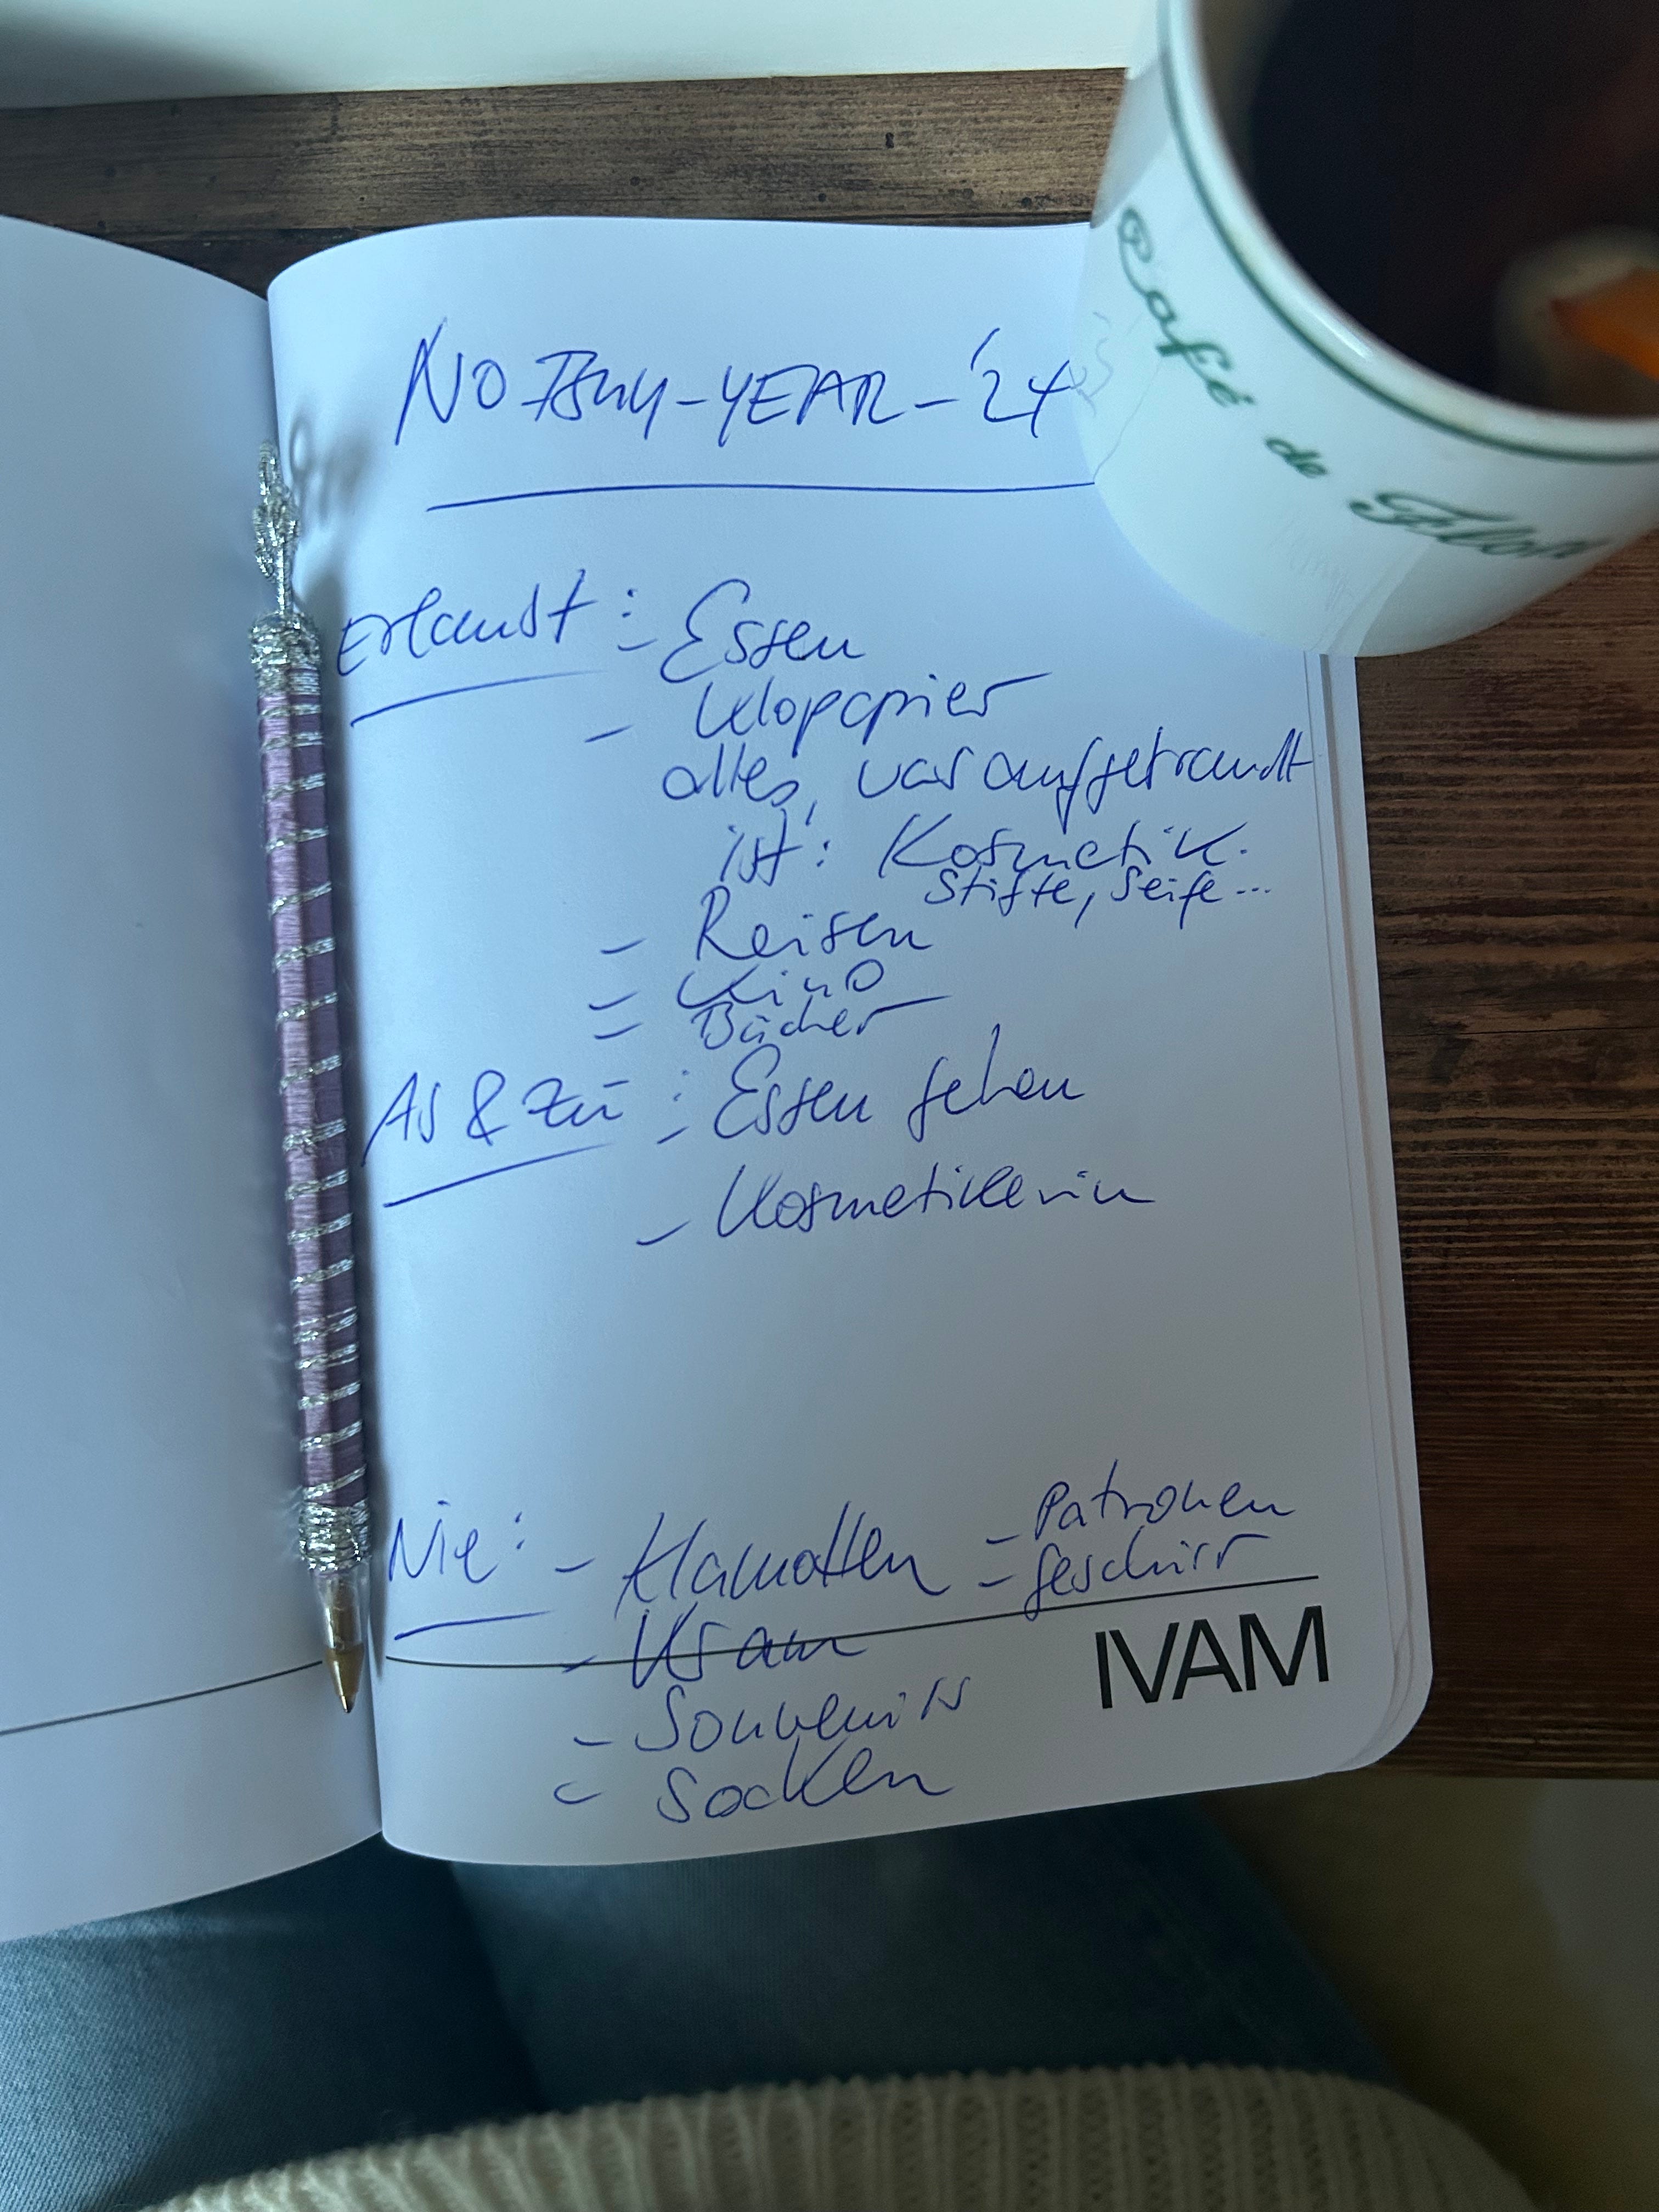 NO-BUY-YEAR-'24
Café de Flore
Erlaubt: - Essen
- Klopapier
alles, was aufgebraucht
ist: Kosmetik.
Stifte, Seife...
- Reisen
- Kino
- Bücher
Ab & Zu: - Essen gehen
- Kosmetikerin
Nie: - Klamotten
- Kram
- Souvenirs
- Socken
- Patronen
- Geschirr
IVAM